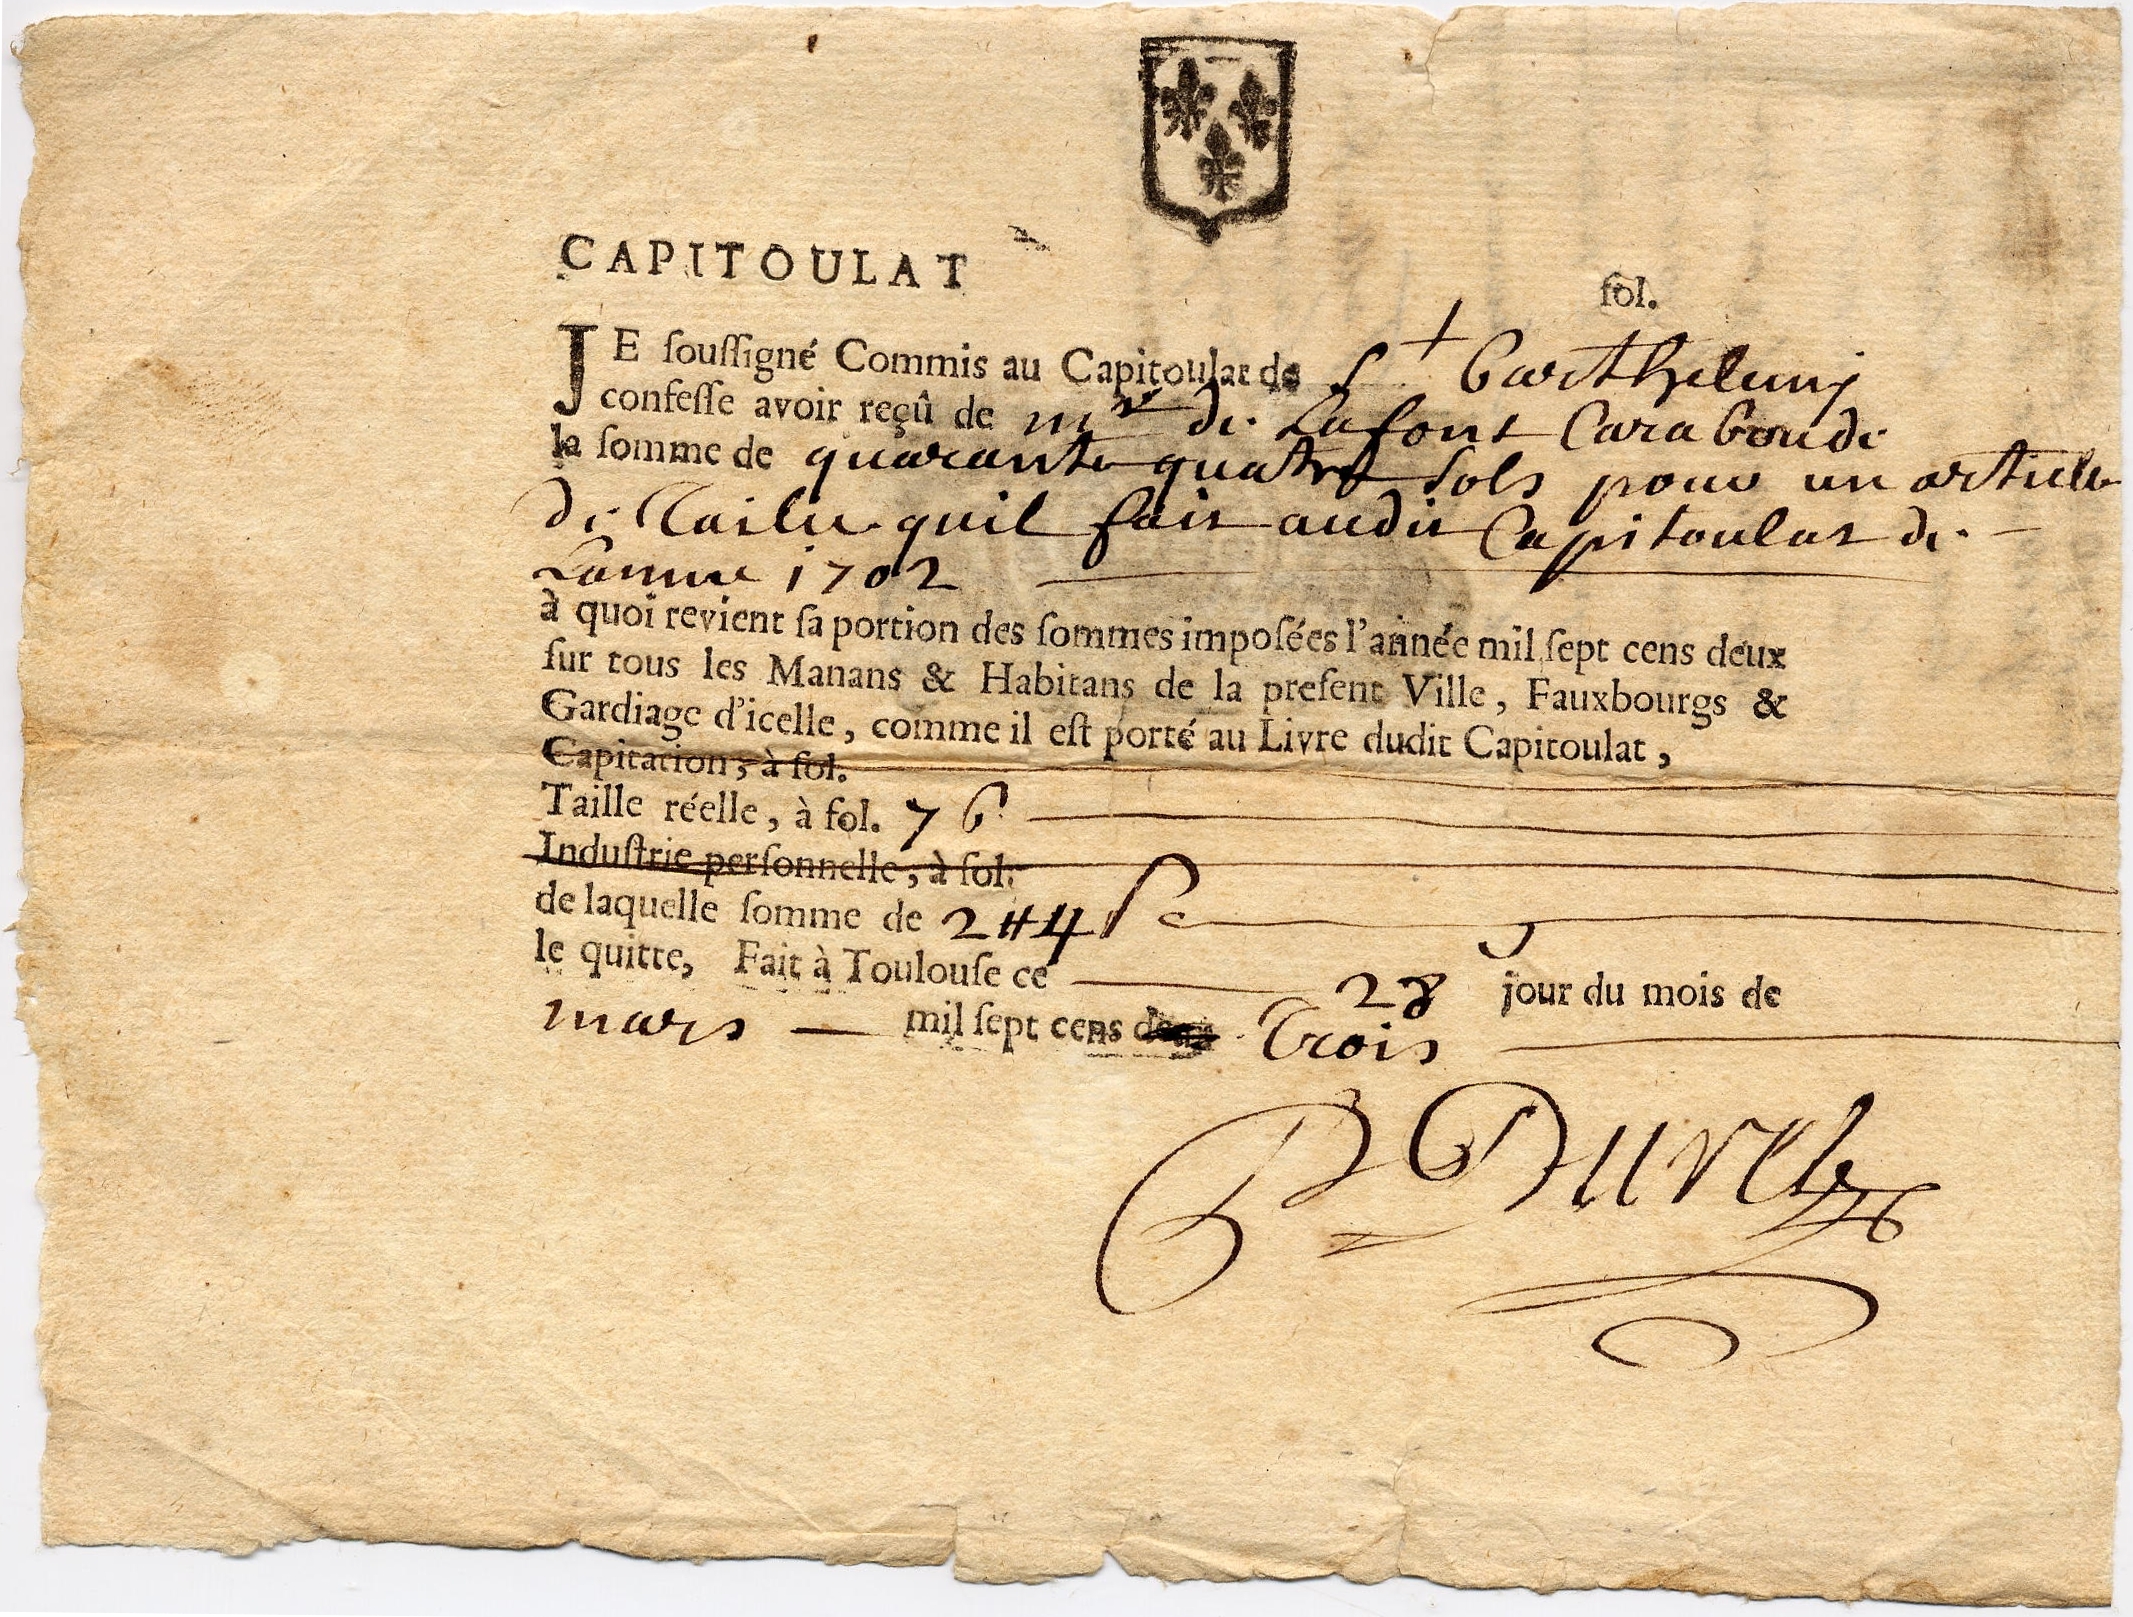 CAPITOULAT
fol.
JE souſſigné Commis au Capitoulat de St Barthelemj
confeſſe avoir reçû de mr de Lafont Caraboude
la ſomme de quarante quatre sols pour un article
de Taille quil fait audit Capitoulat de
Lannee 1702
à quoi revient ſa portion des ſommes impoſées l'année mil ſept cens deux
ſur tous les Manans & Habitans de la preſent Ville, Fauxbourgs &
Gardiage d'icelle, comme il eſt porté au Livre dudit Capitoulat,
Capitation, à fol.
Taille réelle, à fol. 76
Induſtrie perſonnelle, à fol.
de laquelle ſomme de 2 ₶ 4 s je
le quitte, Fait à Toulouſe ce 28 jour du mois de
mars mil ſept cens deux Trois
Duvel